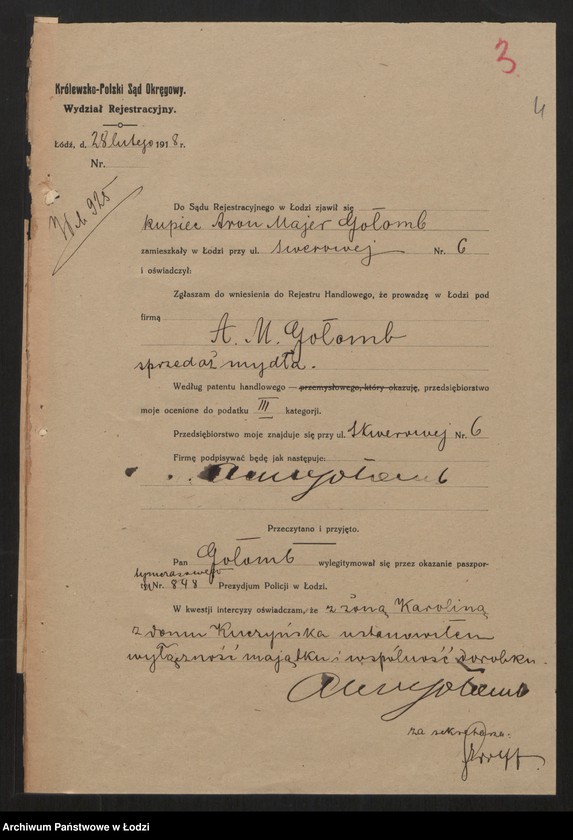 3
4
Królewsko-Polski Sąd Okręgowy.
Wydział Rejestracyjny.
Łódź, d. 28 lutego 1918 r.
Nr.
925
Do Sądu Rejestracyjnego w Łodzi zjawił się
kupiec Aron Majer Gołomb
zamieszkały w Łodzi przy ul. Skwerowej Nr. 6
i oświadczył:
Zgłaszam do wniesienia do Rejestru Handlowego, że prowadzę w Łodzi pod
firmą
A. M. Gołomb
sprzedaż mydła.
Według patentu handlowego — przemysłowego, który okazuję, przedsiębiorstwo
moje ocenione do podatku III kategorji.
Przedsiębiorstwo moje znajduje się przy ul. Skwerowej Nr. 6
Firmę podpisywać będę jak następuje:
Przeczytano i przyjęto.
Pan Gołomb wylegitymował się przez okazanie paszpor-
tymczasowego
tu Nr. 848 Prezydjum Policji w Łodzi.
W kwestji intercyzy oświadczam, że z żoną Karoliną
z domu Kuczyńska ustanowiłem
wyłączność majątku i wspólność dorobku.
za sekretarza.
Archiwum Państwowe w Łodzi